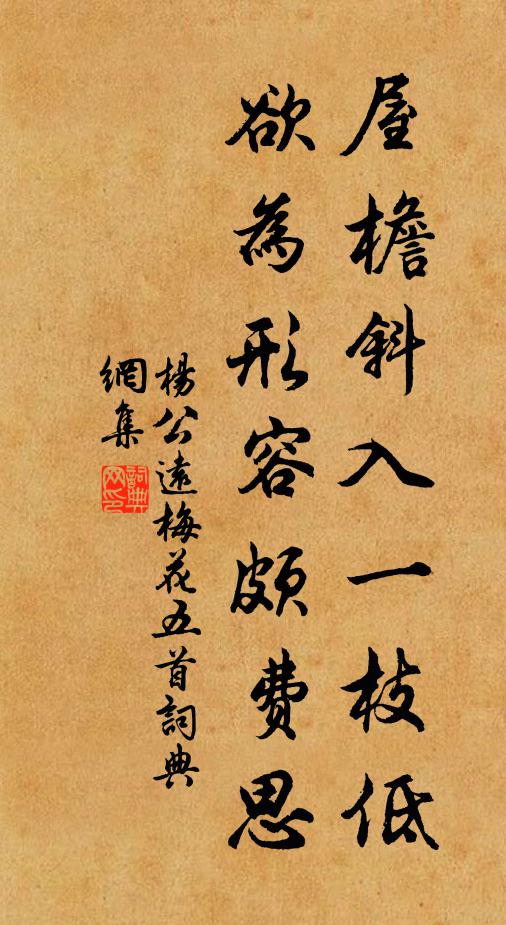 屋檐斜入一枝低
欲為形容頗費思
楊公遠梅花五首詞典
網集
詞典
网印